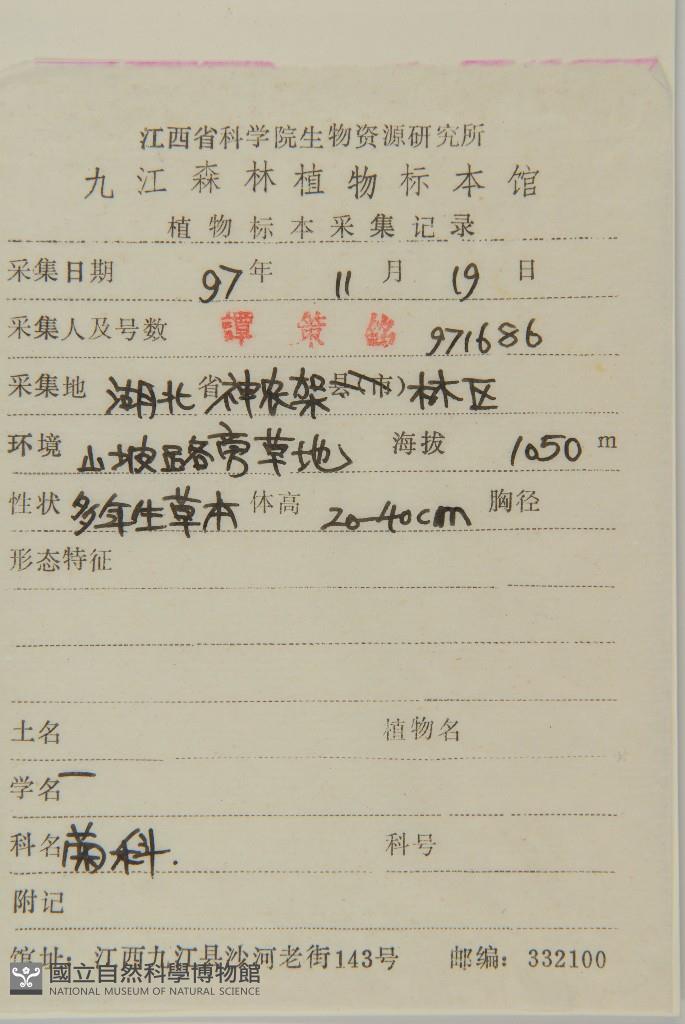 江西省科学院生物资源研究所
九江森林植物标本馆
植物标本采集记录
采集日期 97年 11月 19日
采集人及号数 譚策銘 971686
采集地 湖北省神农架县(市)林区
环境 山坡路旁草地 海拔 1050 m
性状 多年生草本 体高 20-40cm 胸径
形态特征
土名 植物名
学名 一
科名 菊科. 科号
附记
馆址: 江西九江县沙河老街143号 邮编: 332100
國立自然科學博物館
NATIONAL MUSEUM OF NATURAL SCIENCE